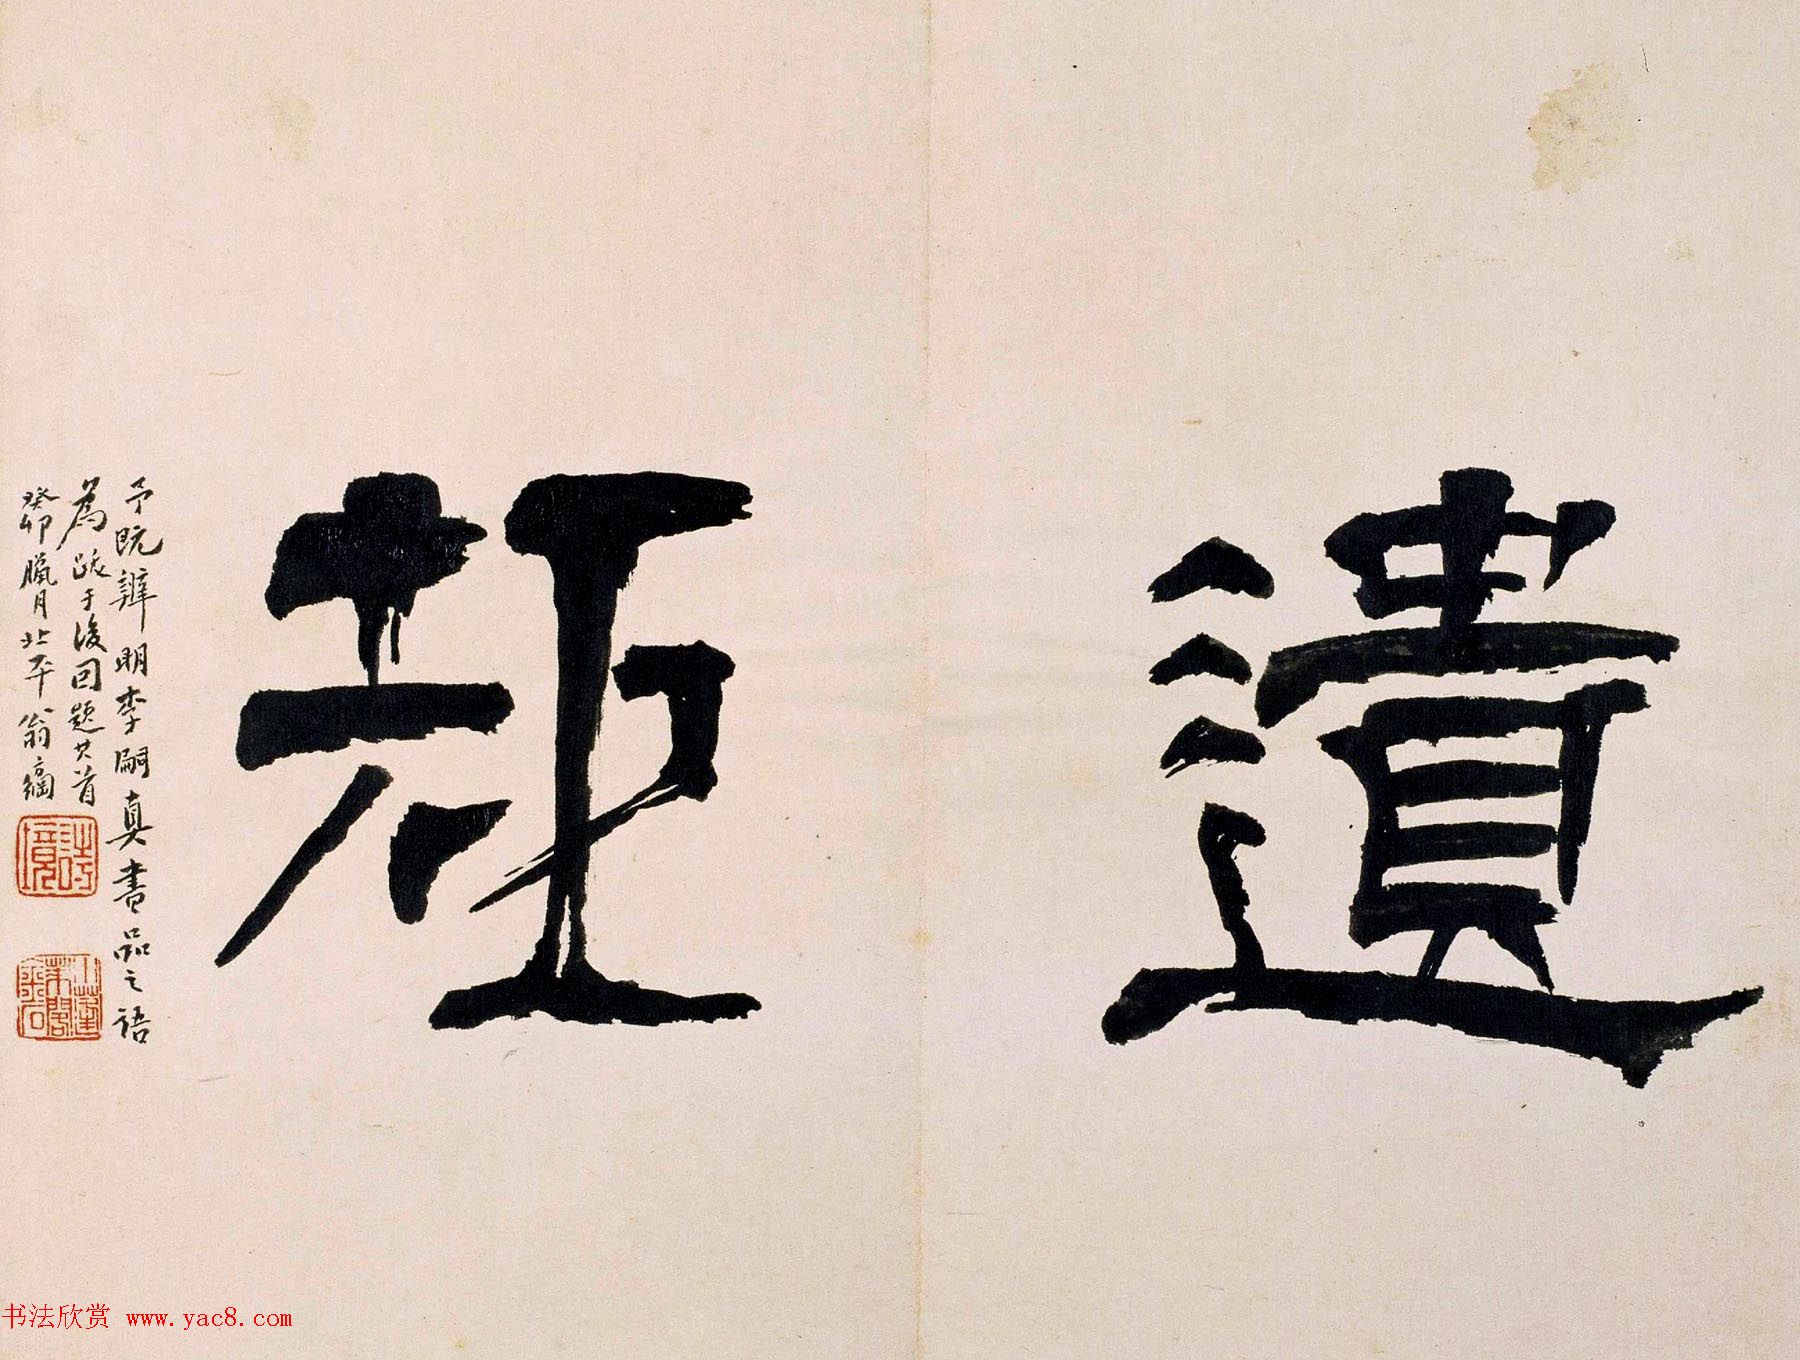 遺矩
予既辨明李嗣真書品之語
為跋于後因題其首
癸卯臘月北平翁方綱
詩境
小蓬萊閣金石
书法欣赏 www.yac8.com